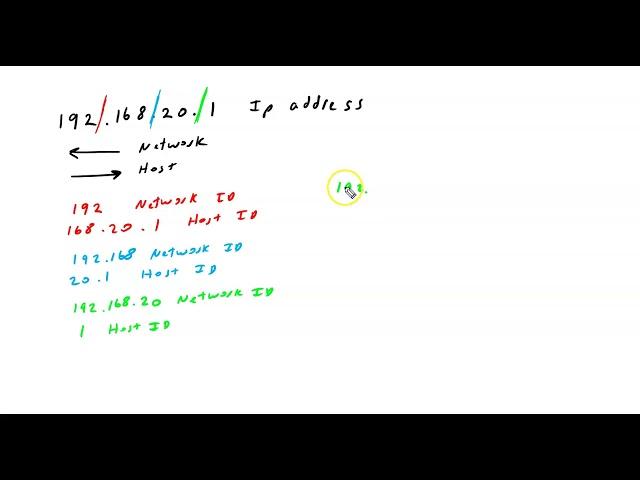 192/.168/20./1 Ip address
Network
Host
192.
192 Network ID
168.20.1 Host ID
192.168 Network ID
20.1 Host ID
192.168.20 Network ID
1 Host ID